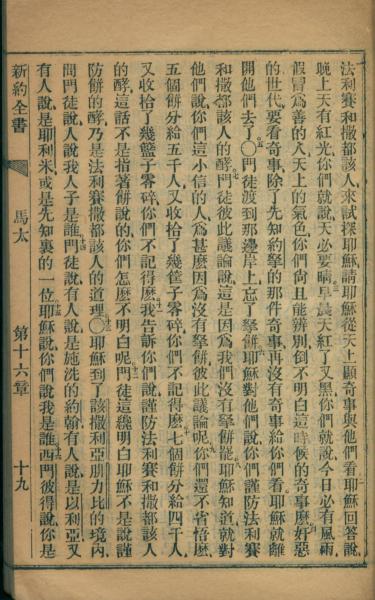 法利賽和撒都該人、來試探耶穌、請耶穌從天上顯奇事與他們看、耶穌回答說、
晚上天有紅光、你們就說、天必要晴、早晨天紅了又黑、你們就說、今日必有風雨、
假冒為善的人、天上的氣色、你們尚且能辨別、倒不明白這時候的奇事麼、奸惡
的世代、要看奇事、除了先知約拏的那件奇事、再沒有奇事給你們看、耶穌就離
開他們去了、〇門徒渡到那邊岸上、忘了拏餅、耶穌對他們說、你們謹防法利賽
和撒都該人的酵、門徒彼此議論說、這是因為我們沒有拏餅罷、耶穌知道、就對
他們說、你們這小信的人、為甚麼因為沒有拏餅彼此議論呢、你們還不省悟麼、
五個餅分給五千人、又收拾了幾籃子零碎、你們不記得麼、七個餅分給四千人、
又收拾了幾筐子零碎、你們不記得麼、我告訴你們說、謹防法利賽和撒都該人
的酵、這話不是指著餅說的、你們怎麼不明白呢、門徒這纔明白耶穌不是說謹
防餅的酵、乃是法利賽撒都該人的道理、〇耶穌到了該撒利亞腓力比的境內、
問門徒說、人說我人子是誰、門徒說、有人說是施洗的約翰、有人說是以利亞、又
有人說是耶利米、或是先知裏的一位、耶穌說、你們說我是誰、西門彼得說、你是
新約全書 馬太 第十六章 十九